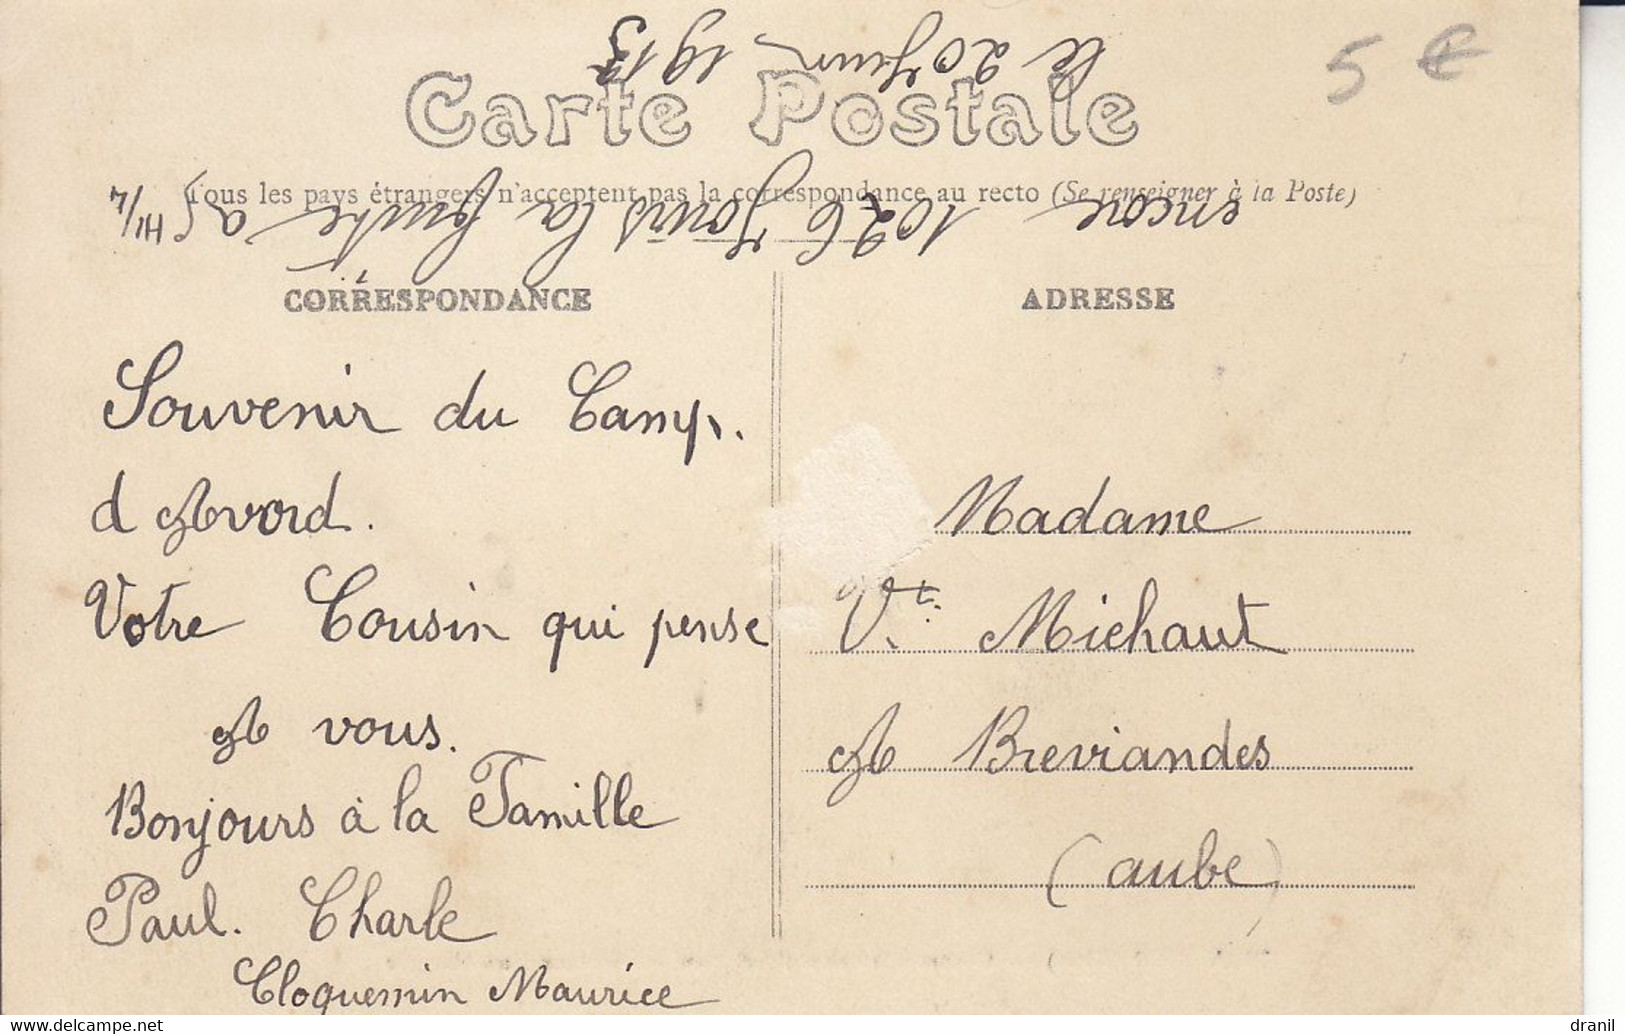 le 20 Juin 1913
5 €
Carte Postale
Tous les pays étrangers n'acceptent pas la correspondance au recto (Se renseigner à la Poste)
encore 1026 Jours la
CORRESPONDANCE
ADRESSE
Souvenir du Camp.
d Avord.
Votre Cousin qui pense
A vous.
Bonjours à la Famille
Paul. Charle
Cloquemin Maurice
Madame
Vt. Michaut
A Breviandes
(aube)
www.delcampe.net
dranil